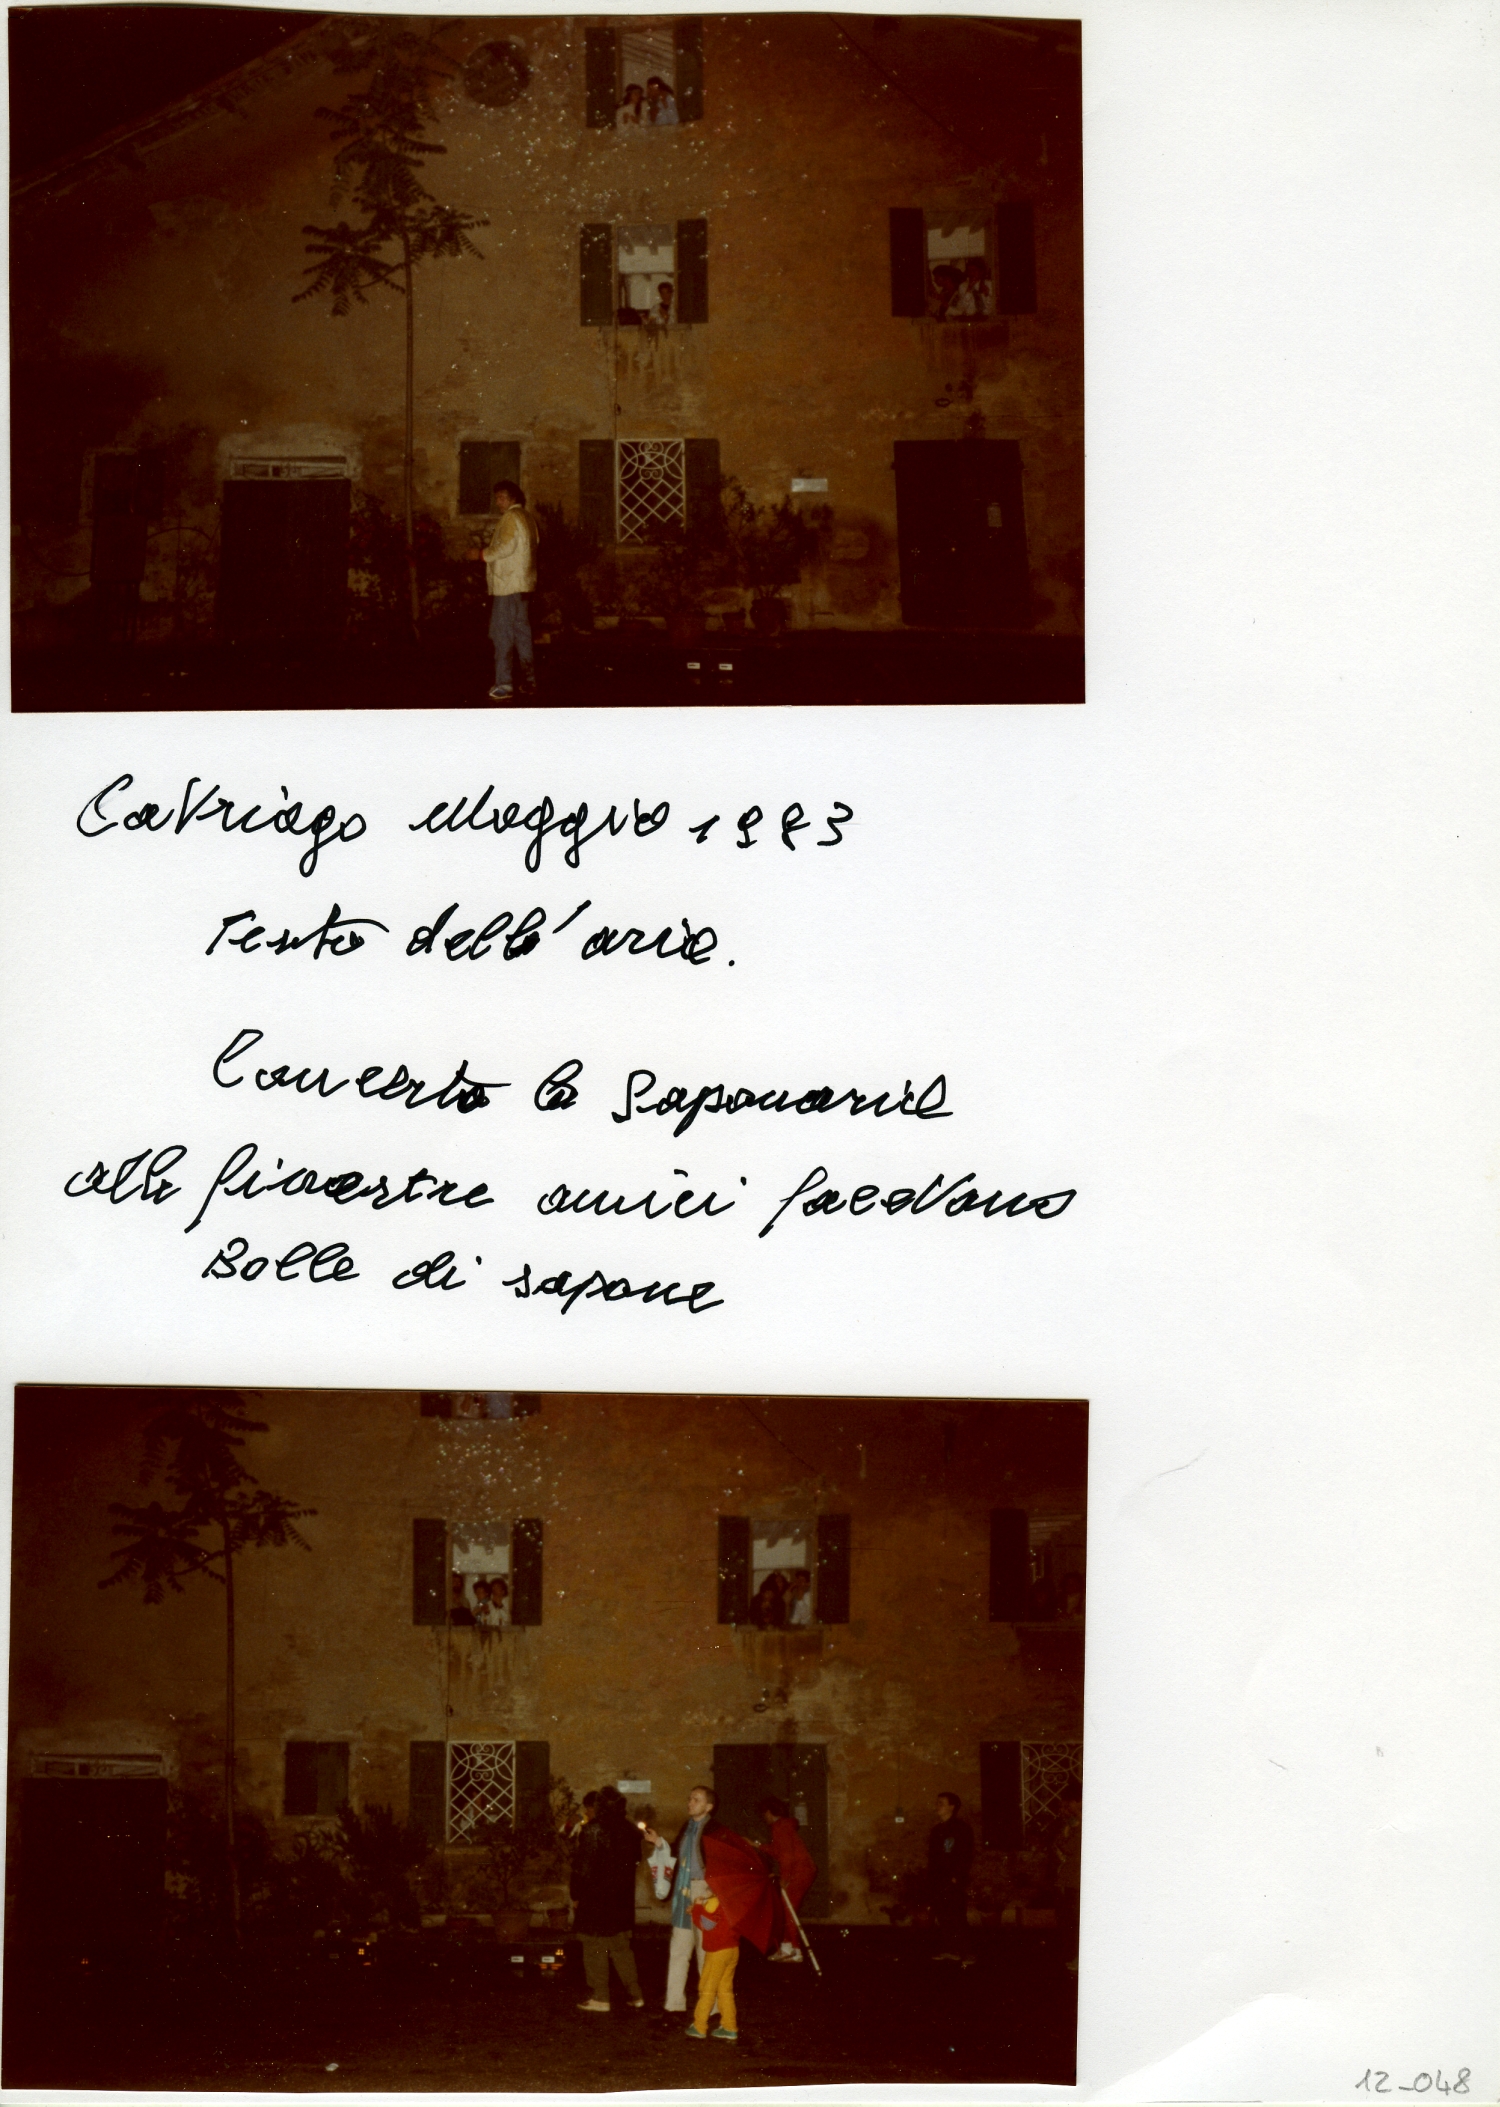 CaVriago Maggio 1983
Testo dell'aria.
Concerto la Saponaria
alle finestre amici facevano
Bolle di sapone
12_048